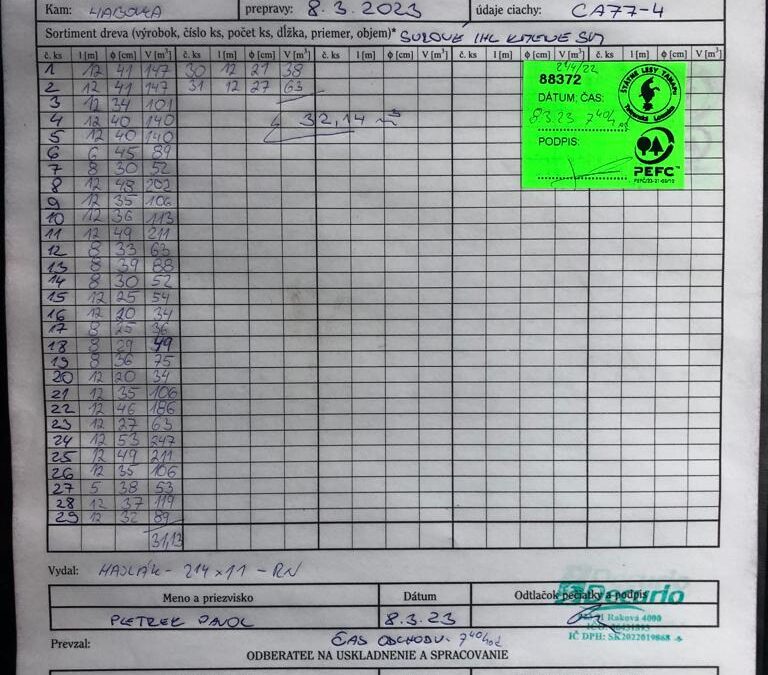 Kam: HABOVKA prepravy: 8.3.2023 údaje ciachy: CA77-4
Sortiment dreva (výrobok, číslo ks, počet ks, dĺžka, priemer, objem)* SUROVÉ IHL KMENE SM
č. ks l [m] ϕ [cm] V [m³] č. ks l [m] ϕ [cm] V [m³] č. ks l [m] ϕ [cm] V [m³] č. ks l [m] ϕ [cm] V [m³] č. ks l [m] ϕ [cm] V [m³]
1 12 41 147 30 12 21 38
2 12 41 147 31 12 27 63
3 12 34 101
4 12 40 140 32,14 m³
5 12 40 140
6 6 45 89
7 8 30 52
8 12 48 202
9 12 35 106
10 12 36 113
11 12 49 211
12 8 33 63
13 8 39 88
14 8 30 52
15 12 25 54
16 12 20 34
17 8 25 36
18 8 29 49
19 8 36 75
20 12 20 34
21 12 35 106
22 12 46 186
23 12 27 63
24 12 53 247
25 12 49 211
26 12 35 106
27 5 38 53
28 12 37 119
29 12 32 89
31,13
214/22
88372
DÁTUM, ČAS:
8.3.23 7⁴⁰h
PODPIS:
ŠTÁTNE LESY TANAPu
Tatranská Lomnica
PEFC™
Vydal: HAJLÁK - 214x11 - RN
Meno a priezvisko Dátum Odtlačok pečiatky a podpis
PIETREK PAVOL 8.3.23
Rakova 4090
IČ DPH: SK2022019868
Prevzal: ČAS ODCHODU: 7⁴⁰hod
ODBERATEĽ NA USKLADNENIE A SPRACOVANIE